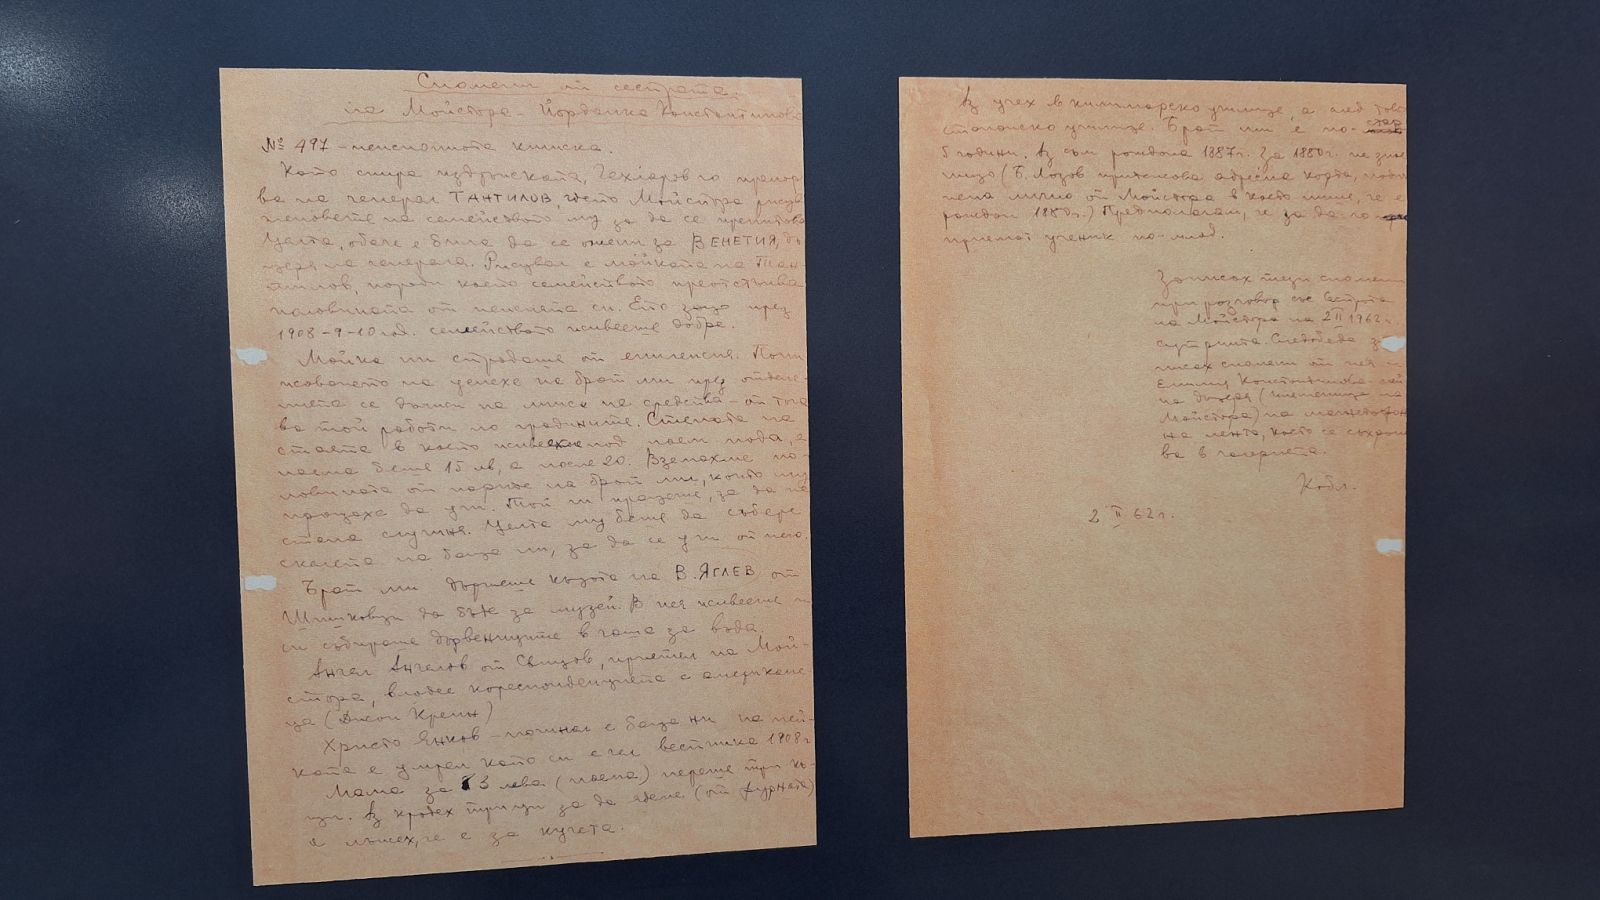 Спомени от сестрата
на Майстора - Йорданка Константинова
№ 497 - пенсионната книжка.
Като спира издръжката, Чехларов го препоръч
ва на генерал ТАНТИЛОВ, дето Майстора рисува
членовете на семейството му за да се препитава
Целта, обаче е била да се ожени за ВЕНЕТИЯ, дъ
щеря на генерала. Рисувал е майката на Тан-
тилов, поради което семейството преотстъпва
половината от пенсията си. Ето защо през
1908-9-10 год. семейството живееше добре.
Майка ни страдаше от епилепсия. Пони
жаването на успеха на брат ми през
се дължи на липса на средства - от тога
ва той работи по градините. Стената на
стаята в която живеехме под наем пада, а
наема беше 15 лв, а после 20. Вземахме по-
ловината от парите на брат ми, които му
пращаха да учи. Той ги пращаше, за да не
стана слугиня. Целта му беше да събере
скелета на баща ни, за да се учи от него.
Брат ми държеше къщата на В. ЯГЛЕВ от
Шишковци да бъде за музей. В нея живееше и
си събираше дървениците в чаша за вода.
Ангел Ангелов от Свищов, приятел на Май-
стора, владее кореспонденцията с американе
ца (Джон Крейн)
Христо Янков - починал е баща ни на пей-
ката е умрял като си е чел вестника 1908 г
Мама за 3 лева (наема) переше три къ-
щи. Аз крадех трици за да ядем (от фурната)
и лъжех, че е за кучета.
Аз учех в килимарско училище, а след това
стопанско училище. Брат ми е по- стар
5 години. Аз съм родена 1887 г. За 1880 г. не зная
нищо (Б. Лозов притежава адресна карта,
лично от Майстора в която пише, че е
роден 188 г.) Предполагам, че за да го
приемат ученик по-млад.
Записах тези спомени
при разговор със сестрата
на Майстора на 2 II 1962 г.
сутринта. Следобеда за
писах спомени от нея и
Емилия Константинова
на дъщеря (племеница на
Майстора) на магнетофон
на лента, която се съхраня
ва в галерията.
2 II 62 г.